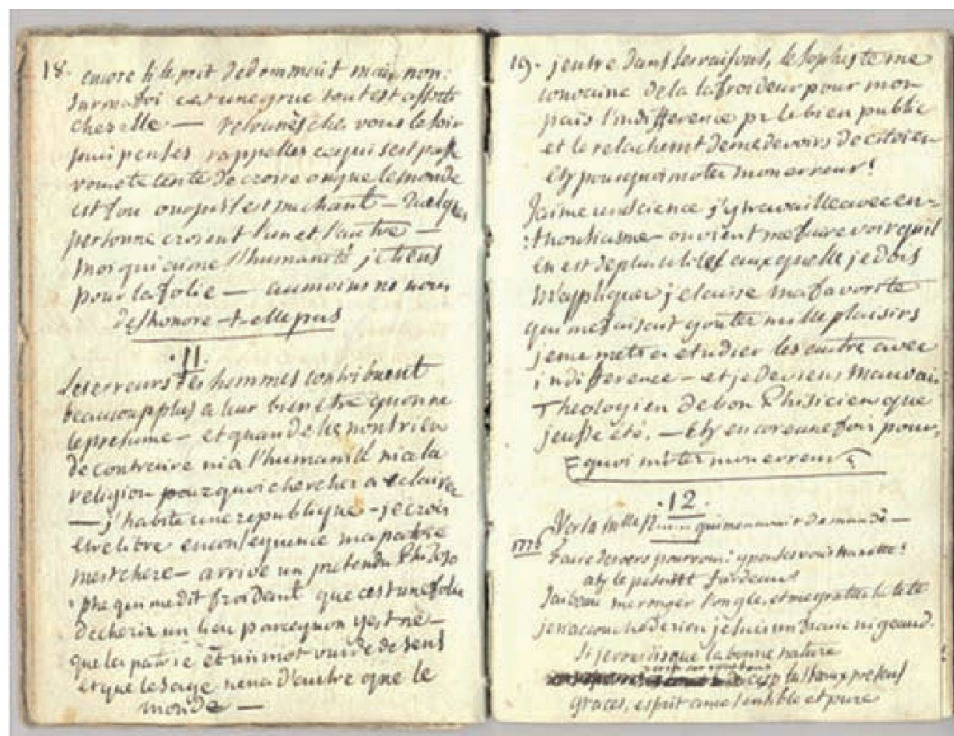 18.
encore si le prit dedommoit mais non.
sur ma foi c'est une grue tout est
chez elle — retournés chez vous le soir
puis pensés rappelles ce qui s'est passé
vous ete tenté de croire ou que le monde
est fou ou qu'il est mechant — quelques
personne croient l'un et l'autre —
moi qui aime l'humanité je tiens
pour la folie — au moins ne nous
deshonore-t-elle pas
.11.
Les erreurs des hommes contribuent
beaucoup plus a leur bien etre qu'on ne
le presume — et quand elles n'ont rien
de contraire ni a l'humanité ni a la
religion pourquoi chercher a eclairer
— j'habite une republique — je crois
etre libre en consequence ma patrie
m'est chere — arrive un pretendu Philoso
:phe qui me dit froidemt que c'est une folie
de cherir un lieu parcequ'on y est né —
que la patrie est un mot vuide de sens
et que le sage n'en a d'autre que le
monde —
19. j'entre dans ses raisons, le sophiste me
convainc de la la froideur pour mon
pais l'indifference pr le bien public
et le relachemt de mes devoirs de citoien
et pourquoi m'oter mon erreur!
J'aime une science j'y travaille avec en=
:thousiasme — on vient me faire voir qu'il
en est de plus utiles auxquelles je dois
m'appliquer je laisse ma favorite
qui me faisait gouter mille plaisirs
je me mets a etudier les autre avec
indifference — et je deviens mauvais
Theologien de bon Phisicien que
j'eusse été. — et encore une fois pour=
=quoi m'oter mon erreur
.12.
Vers a Mlle qui m'en avait demandé —
Faire des vers pour vous! y pensés vous Nanette!
le pesant fardeau!
J'ai beau me ronger l'ongle, et me gratter la tete
je n'accouche de rien je suis un franc nigaud.
Si j'avois que la bonne nature
graces, esprit ame sensible et pure